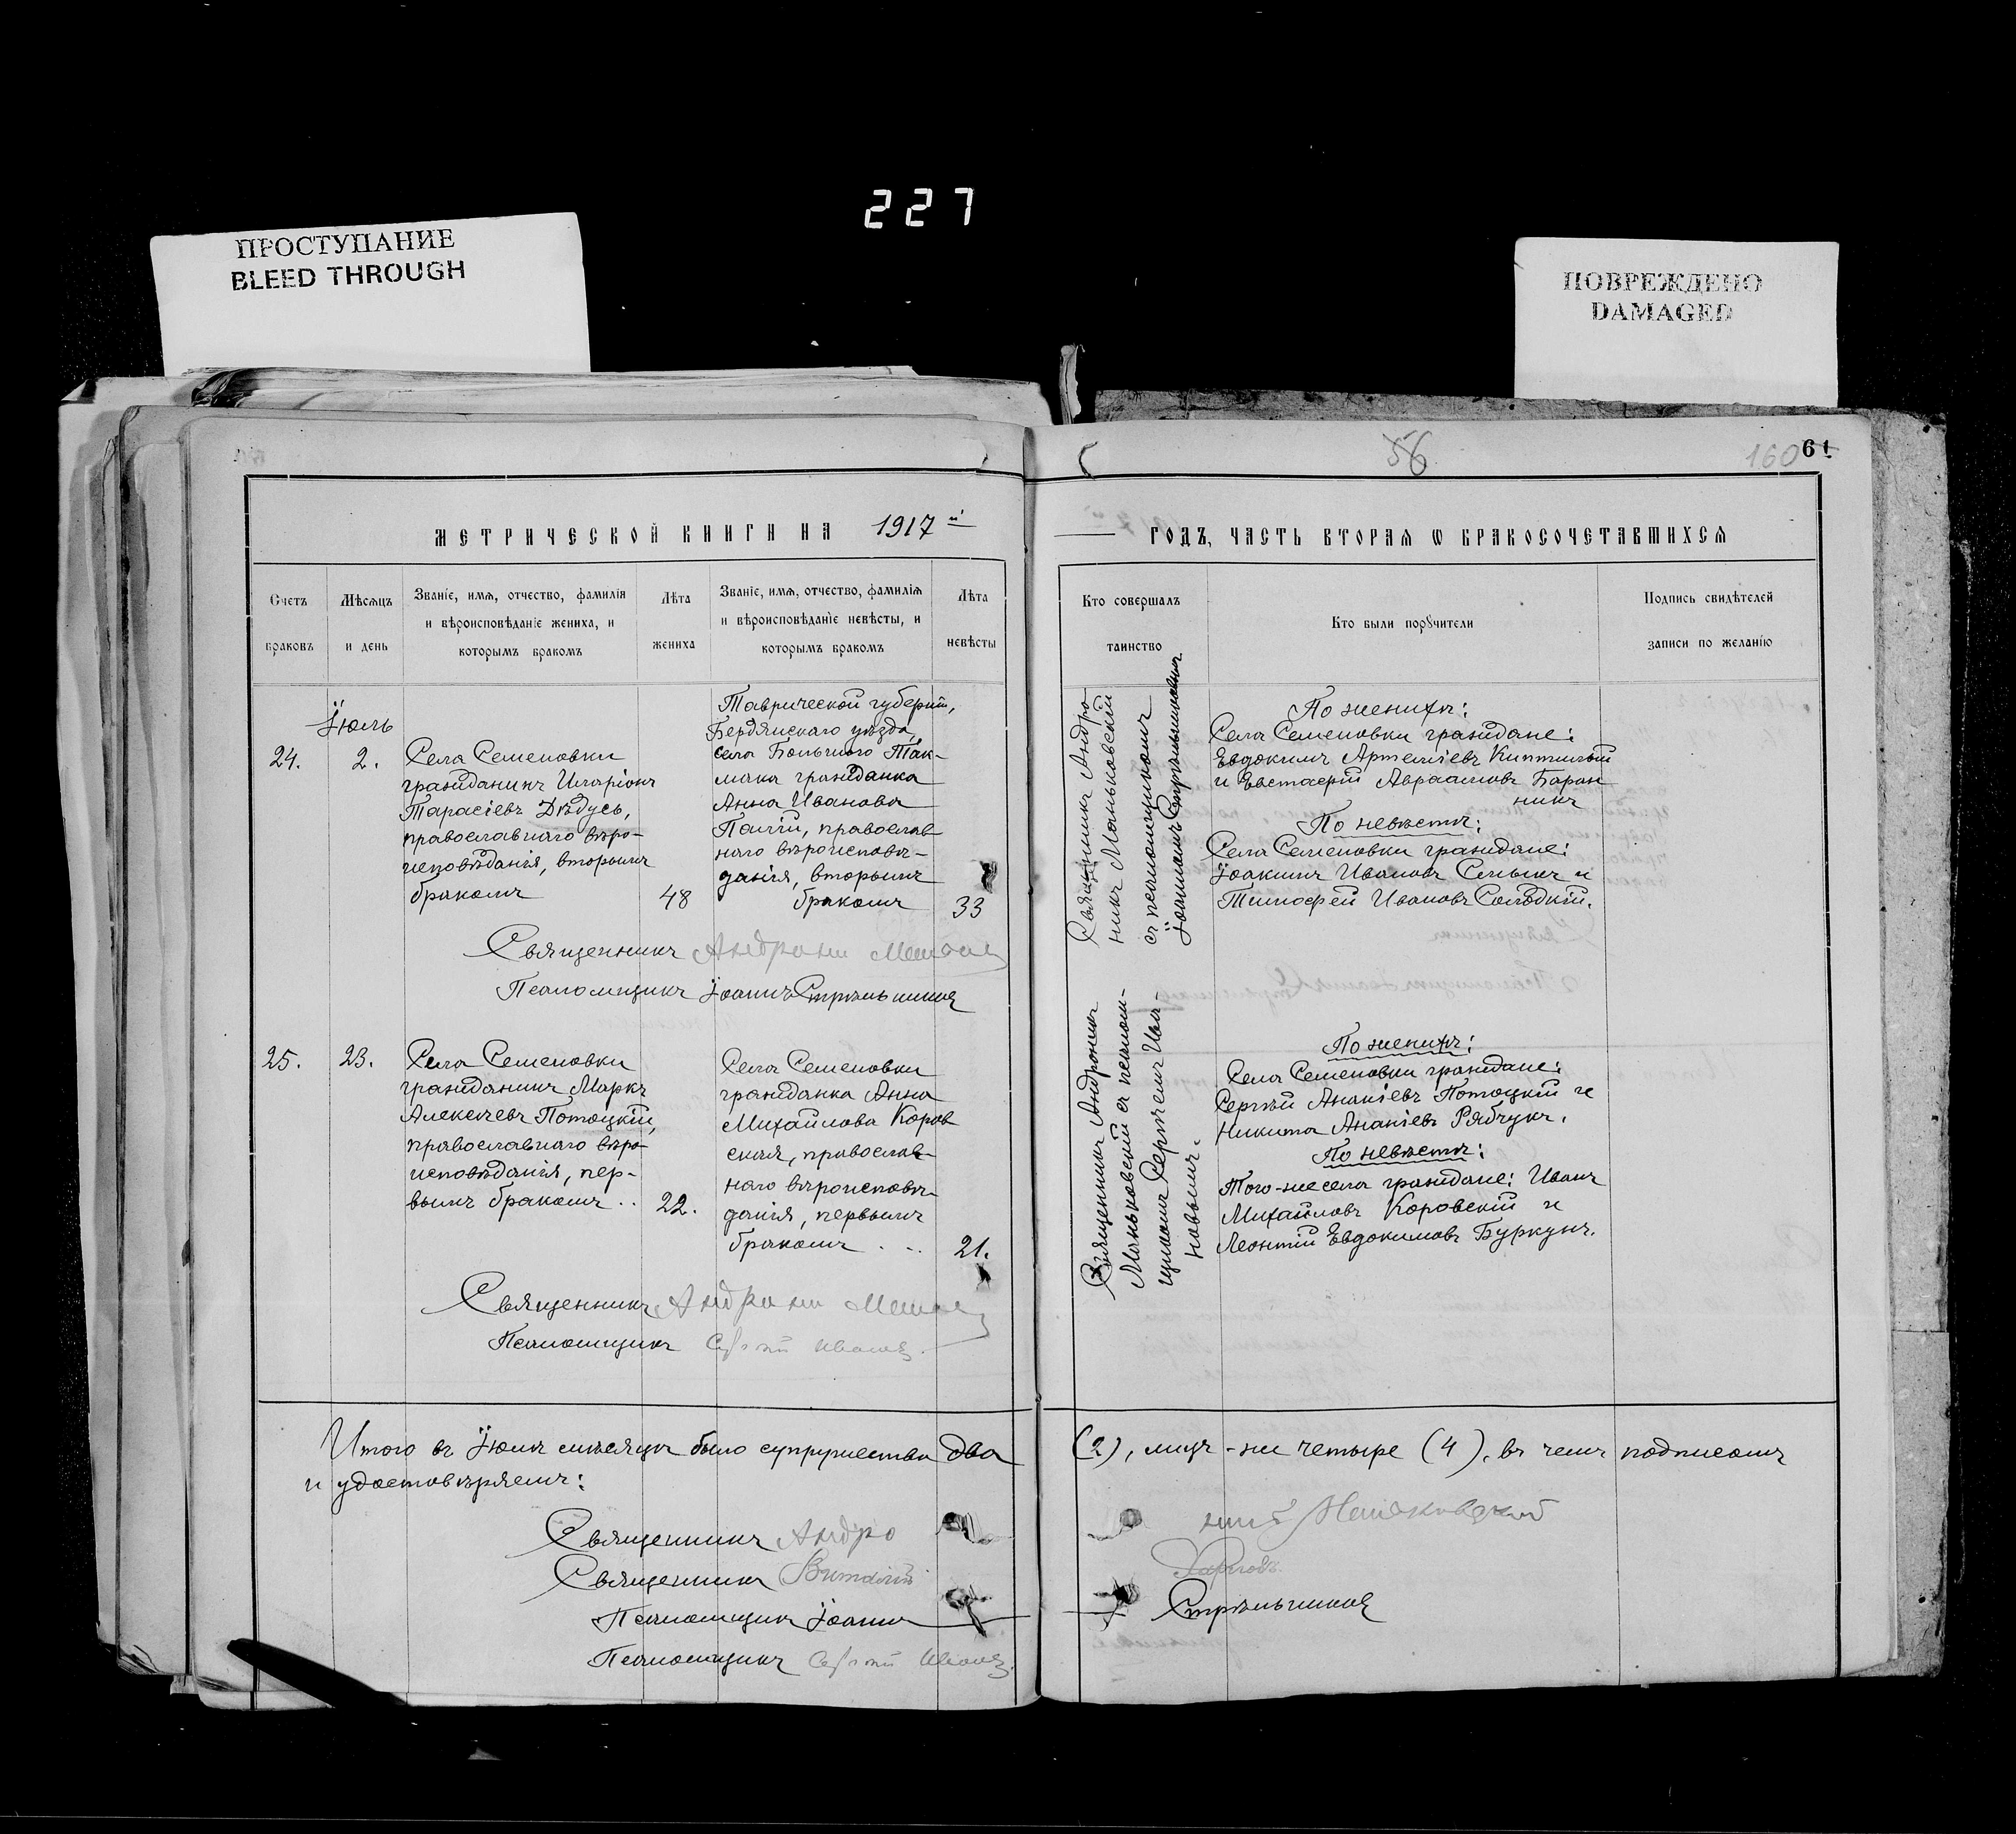 227
ПРОСТУПАНИЕ
BLEED THROUGH
ПОВРЕЖДЕНО
DAMAGED
56
160
61
МЕТРИЧЕСКОЙ КНИГИ НА 1917й
ГОДЪ, ЧАСТЬ ВТОРАЯ Ѡ БРАКОСОЧЕТАВШИХСЯ
Счетъ браковъ
Мѣсяцъ и день
Званіе, имя, отчество, фамилія
и вѣроисповѣданіе жениха, и
которымъ бракомъ
Лѣта жениха
Званіе, имя, отчество, фамилія
и вѣроисповѣданіе невѣсты, и
которымъ бракомъ
Лѣта невѣсты
Кто совершалъ
таинство
Кто были порꙋчители
Подпись свидѣтелей
записи по желанію
Іюль
24.
2.
Села Семеновки
гражданинъ Иларіонъ
Тарасіевъ Дѣдусь,
православнаго вѣро-
исповѣданія, вторымъ
бракомъ
48
Таврической губерніи,
Бердянскаго уѣзда,
села Большого Ток-
мака гражданка
Анна Иванова
православ
наго вѣроисповѣ-
данія, вторымъ
бракомъ
33
Священникъ Андро
никъ Маньковскій
съ псаломщикомъ
Іоанномъ Стрѣльниковымъ
По женихѣ:
Села Семеновки граждане:
Евдокимъ Артеміевъ
и Евстафій Авраамовъ Баран
никъ
По невѣстѣ:
Села Семеновки граждане:
Іоакимъ Ивановъ и
Тимофей Ивановъ Солодкій.
Священникъ
Псаломщикъ Іоаннъ Стрѣльниковъ
25.
23.
Села Семеновки
гражданинъ Маркъ
Алексѣевъ Потоцкій,
православнаго вѣро-
исповѣданія, пер-
вымъ бракомъ ..
22.
Села Семеновки
гражданка Анна
Михайлова Коров
ская, православ-
наго вѣроисповѣ-
данія, первымъ
бракомъ . ..
21.
Священникъ Андроникъ
Маньковскій съ псалом-
щикомъ Сергѣемъ Ива-
новымъ.
По женихѣ:
Села Семеновки граждане:
Сергѣй Ананіевъ Потоцкій и
Никита Ананіевъ Рябчукъ.
По невѣстѣ:
Того-же села граждане: Иванъ
Михайловъ Коровскій и
Леонтій Евдокимовъ Буркунъ.
Священникъ
Псаломщикъ Сергѣй Ивановъ
Итого въ Іюлѣ мѣсяцѣ было супружествъ два (2), лицъ-же четыре (4), въ чемъ подписомъ
и удостовѣряемъ:
Священникъ Андро никъ Маньковскій
Священникъ Виталій
Псаломщикъ Іоаннъ Стрѣльниковъ
Псаломщикъ Сергѣй Ивановъ